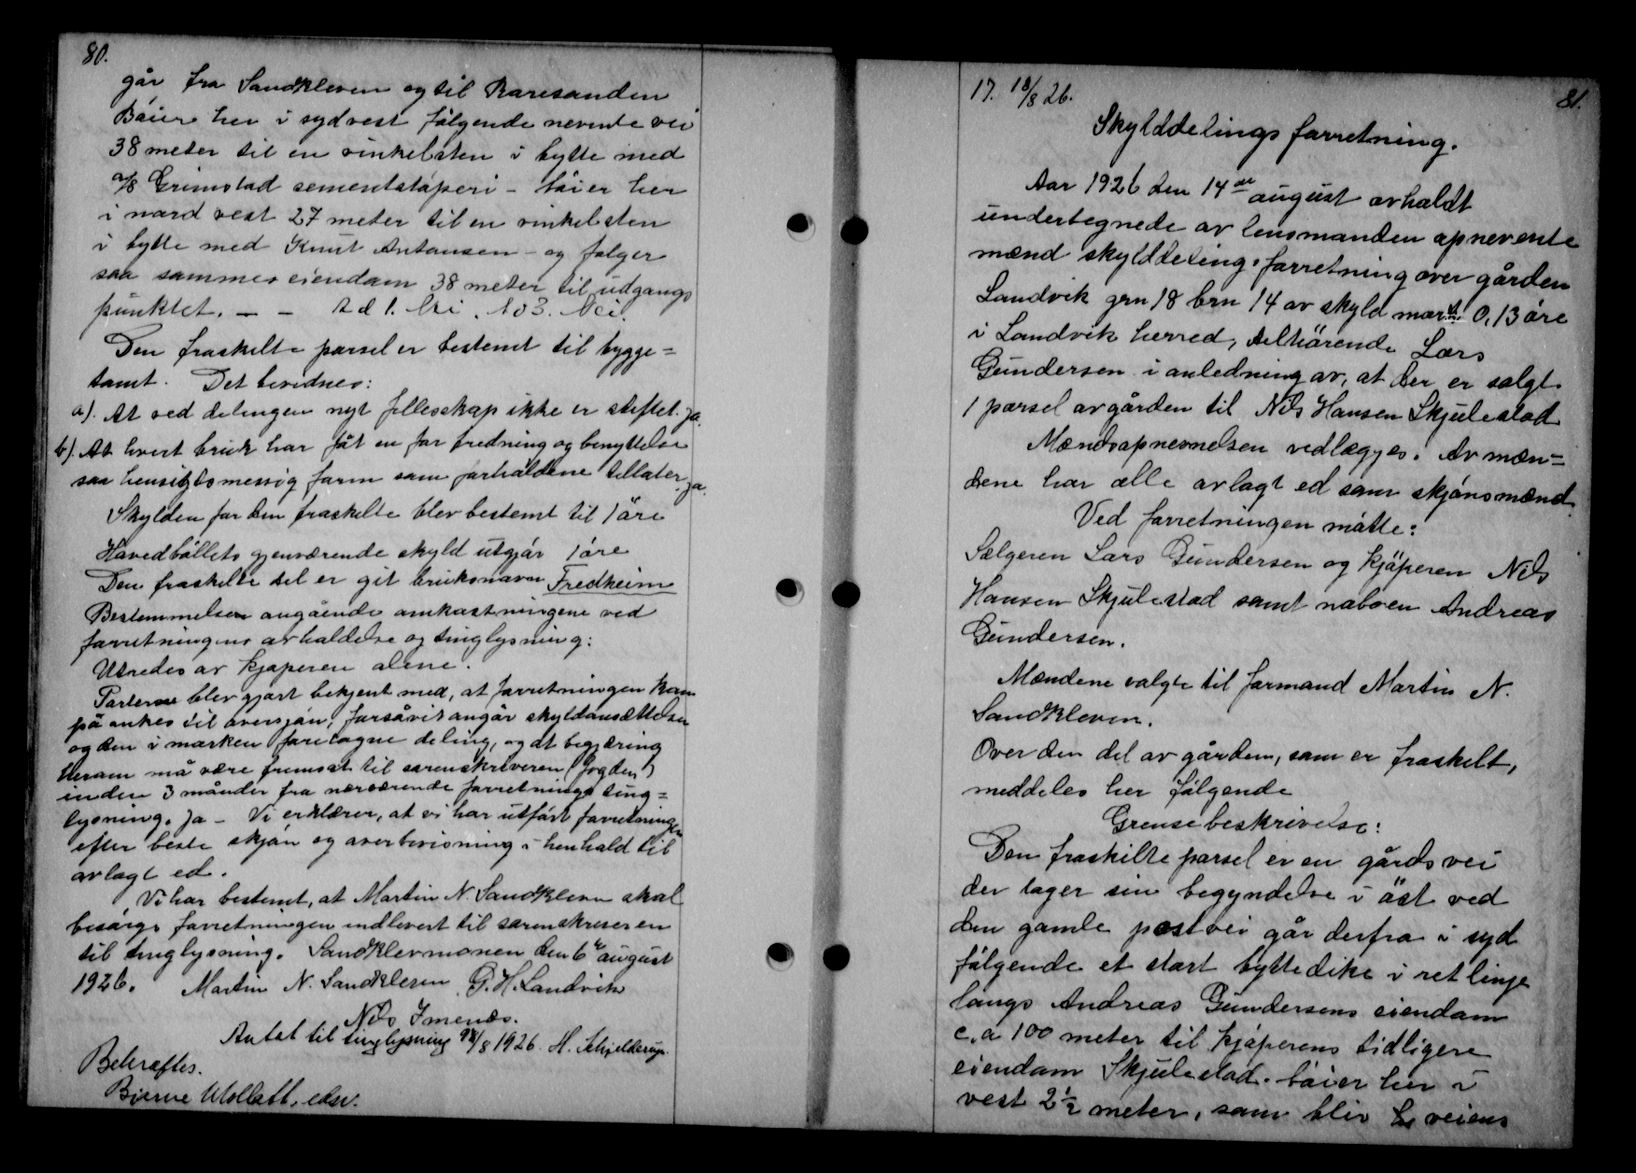 80.
går fra Sandkleven og til Raresanden
Bäier her i sydvest følgende nevnte vei
38 meter til en vinkelsten i bytte med
a/s Grimstad sementstøperi - bäier her
i nordvest 27 meter til en vinkelsten
i bytte med Knut Antonsen - og følger
saa sammes eiendom 38 meter til udgangs
punktet. - - Ad 1. Nei. No 3. Nei.
Den fraskilte parsel er bestemt til bygge=
tomt. Det bevidnes:
a). At ved delingen nyt fellesskap ikke er stiftet. ja.
b). At hvert bruk har fåt en for fredning og benyttelse
saa hensigtsmessig form som forholdene tillater. ja.
Skylden for den fraskilte blev bestemt til 1 öre
Hovedböllets gjenværende skyld utgjör 1 öre
Den fraskilte del er git bruksnavn Fredheim
Bestemmelsen angående omkostningene ved
forretningens avholdelse og tinglysning:
Utredes av kjøperen alene.
Parterne blev gjort bekjent med, at forretningen kan
på ankes til overskjön, forsåvit angår skyldansættelsen
og den i marken foretagne deling, og at begjæring
herom må være fremsat til sorenskriveren (fogden)
inden 3 månder fra nærværende forretnings ting=
lysning. Ja - Vi erklærer, at vi har utfört forretningen
efter beste skjön og overbevisning i henhold til
avlagt ed.
Vi har bestemt, at Martin N. Sandkleven skal
besörge forretningen indlevert til sorenskriveren
til tinglysning. Sandklevmonen den 6te august
1926. Martin N. Sandkleven G. H. Landvik
Nils Imenes.
Antat til tinglysning 18/8 1926. H. Schjelderup.
Bekræftes.
Bjarne edsv.
17. 18/8 26.
81.
Skylddelingsforretning.
Aar 1926 den 14de august avholdt
undertegnede av lensmanden opnevnte
mænd skylddelings forretning over gården
Landvik grn 18 brn 14 av skyld mark 0,13 öre
i Landvik herred, tilhörende Lars
Gundersen i anledning av, at der er solgt
1 parsel av gården til Nils Hansen Skjulestad
Mændsopnevnelsen vedlægges. Av mæn=
dene har alle avlagt ed som skjönsmænd.
Ved forretningen mötte:
Sælgeren Lars Gundersen og kjöperen Nils
Hansen Skjulestad samt naboen Andreas
Gundersen.
Mændene valgte til formand Martin N.
Sandkleven.
Over den del av gården, som er fraskilt,
meddeles her fölgende
Grensebeskrivelse:
Den fraskilte parsel er en gårdsvei
der tager sin begyndelse i öst ved
den gamle postvei går derfra i syd
fölgende et stort byttedike i ret linje
langs Andreas Gundersens eiendom
c.a 100 meter til kjöperens tidligere
eiendom Skjulestad. böier her i
vest 2 1/2 meter, som blir veiens